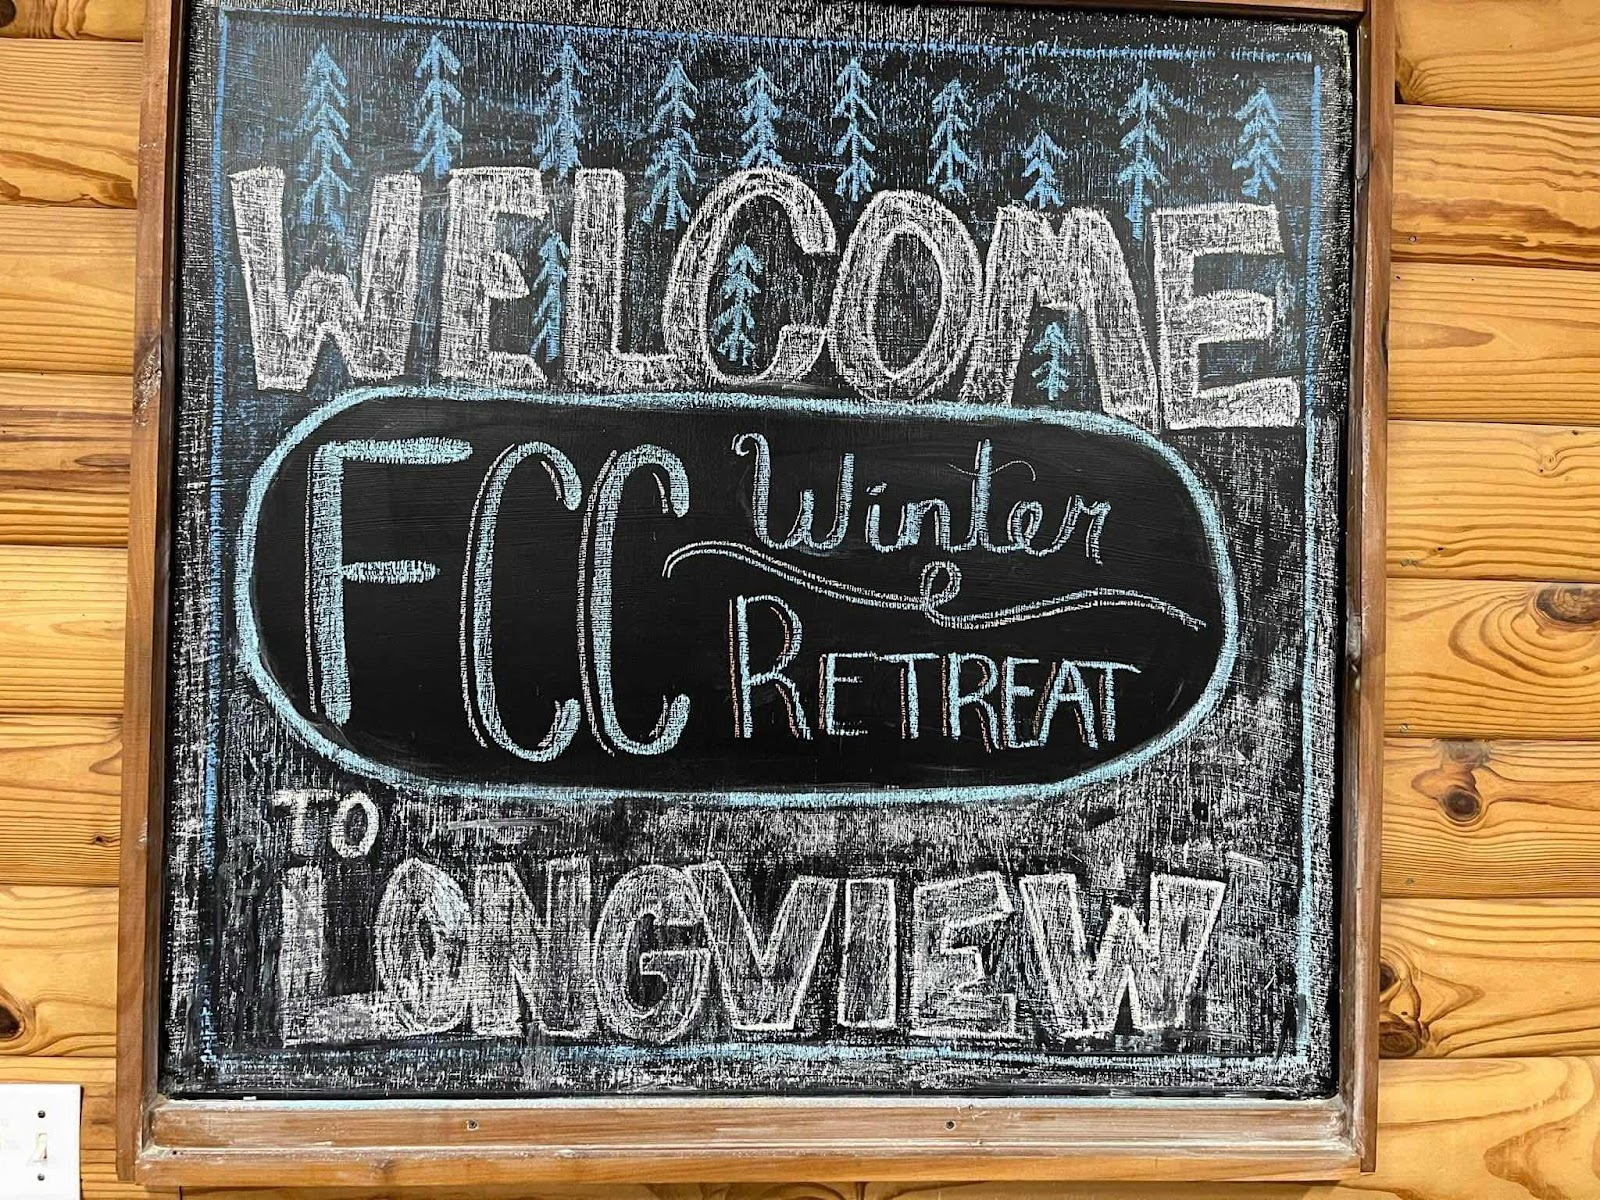 WELCOME
FCC Winter
RETREAT
TO
LONGVIEW